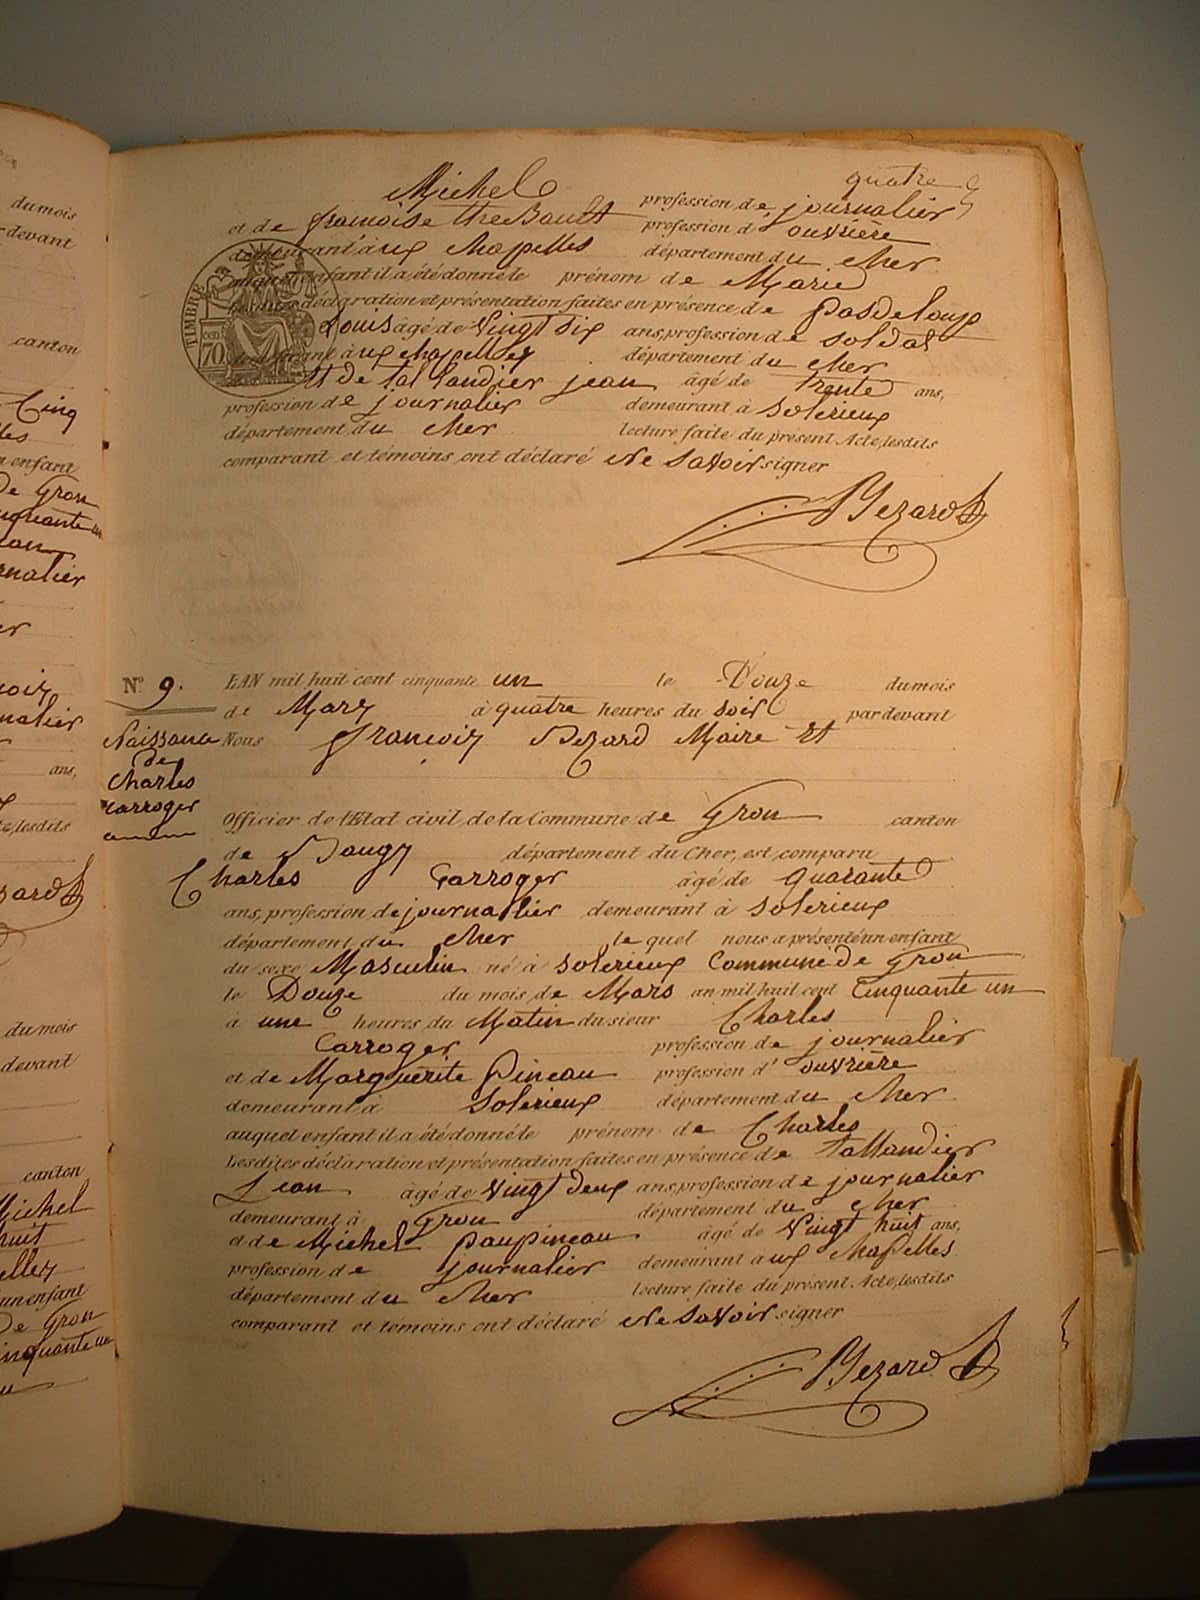 quatre
Michel profession de journalier
et de françoise thebault profession d' ouvrière
demeurant à ux chapelles département du cher
auquel enfant il a été donné le prénom de Marie
Lesdites déclaration et présentation faites en présence de pasdeloup
Louis âgé de Vingt six ans, profession de soldat
demeurant à ux chapelles département du cher
et de tallandier jean âgé de trente ans,
profession de journalier demeurant à solerieux
département du cher lecture faite du présent Acte, lesdits
comparant et témoins ont déclaré ne savoir signer
Bezard
TIMBRE
70
N° 9.
Naissance
de
Charles
Carroger
L'AN mil huit cent cinquante un le Douze du mois
de Mars à quatre heures du soir pardevant
Nous françois Bezard Maire et
Officier de l'Etat civil de la Commune de Gron canton
de Baugy département du Cher, est comparu
Charles Carroger âgé de quarante
ans, profession de journalier demeurant à solerieux
département du cher le quel nous a présenté un enfant
du sexe Masculin né à solerieux Commune de Gron
le Douze du mois de Mars an mil huit cent Cinquante un
à une heures du Matin du sieur Charles
Carroger profession de journalier
et de Marguerite Pineau profession d' ouvrière
demeurant à solerieux département du cher
auquel enfant il a été donné le prénom de Charles
Lesdites déclaration et présentation faites en présence de tallandier
Jean âgé de vingt deux ans, profession de journalier
demeurant à Gron département du cher
et de Michel paupineau âgé de Vingt huit ans,
profession de journalier demeurant a ux chapelles
département du cher lecture faite du présent Acte, lesdits
comparant et témoins ont déclaré ne savoir signer
Bezard